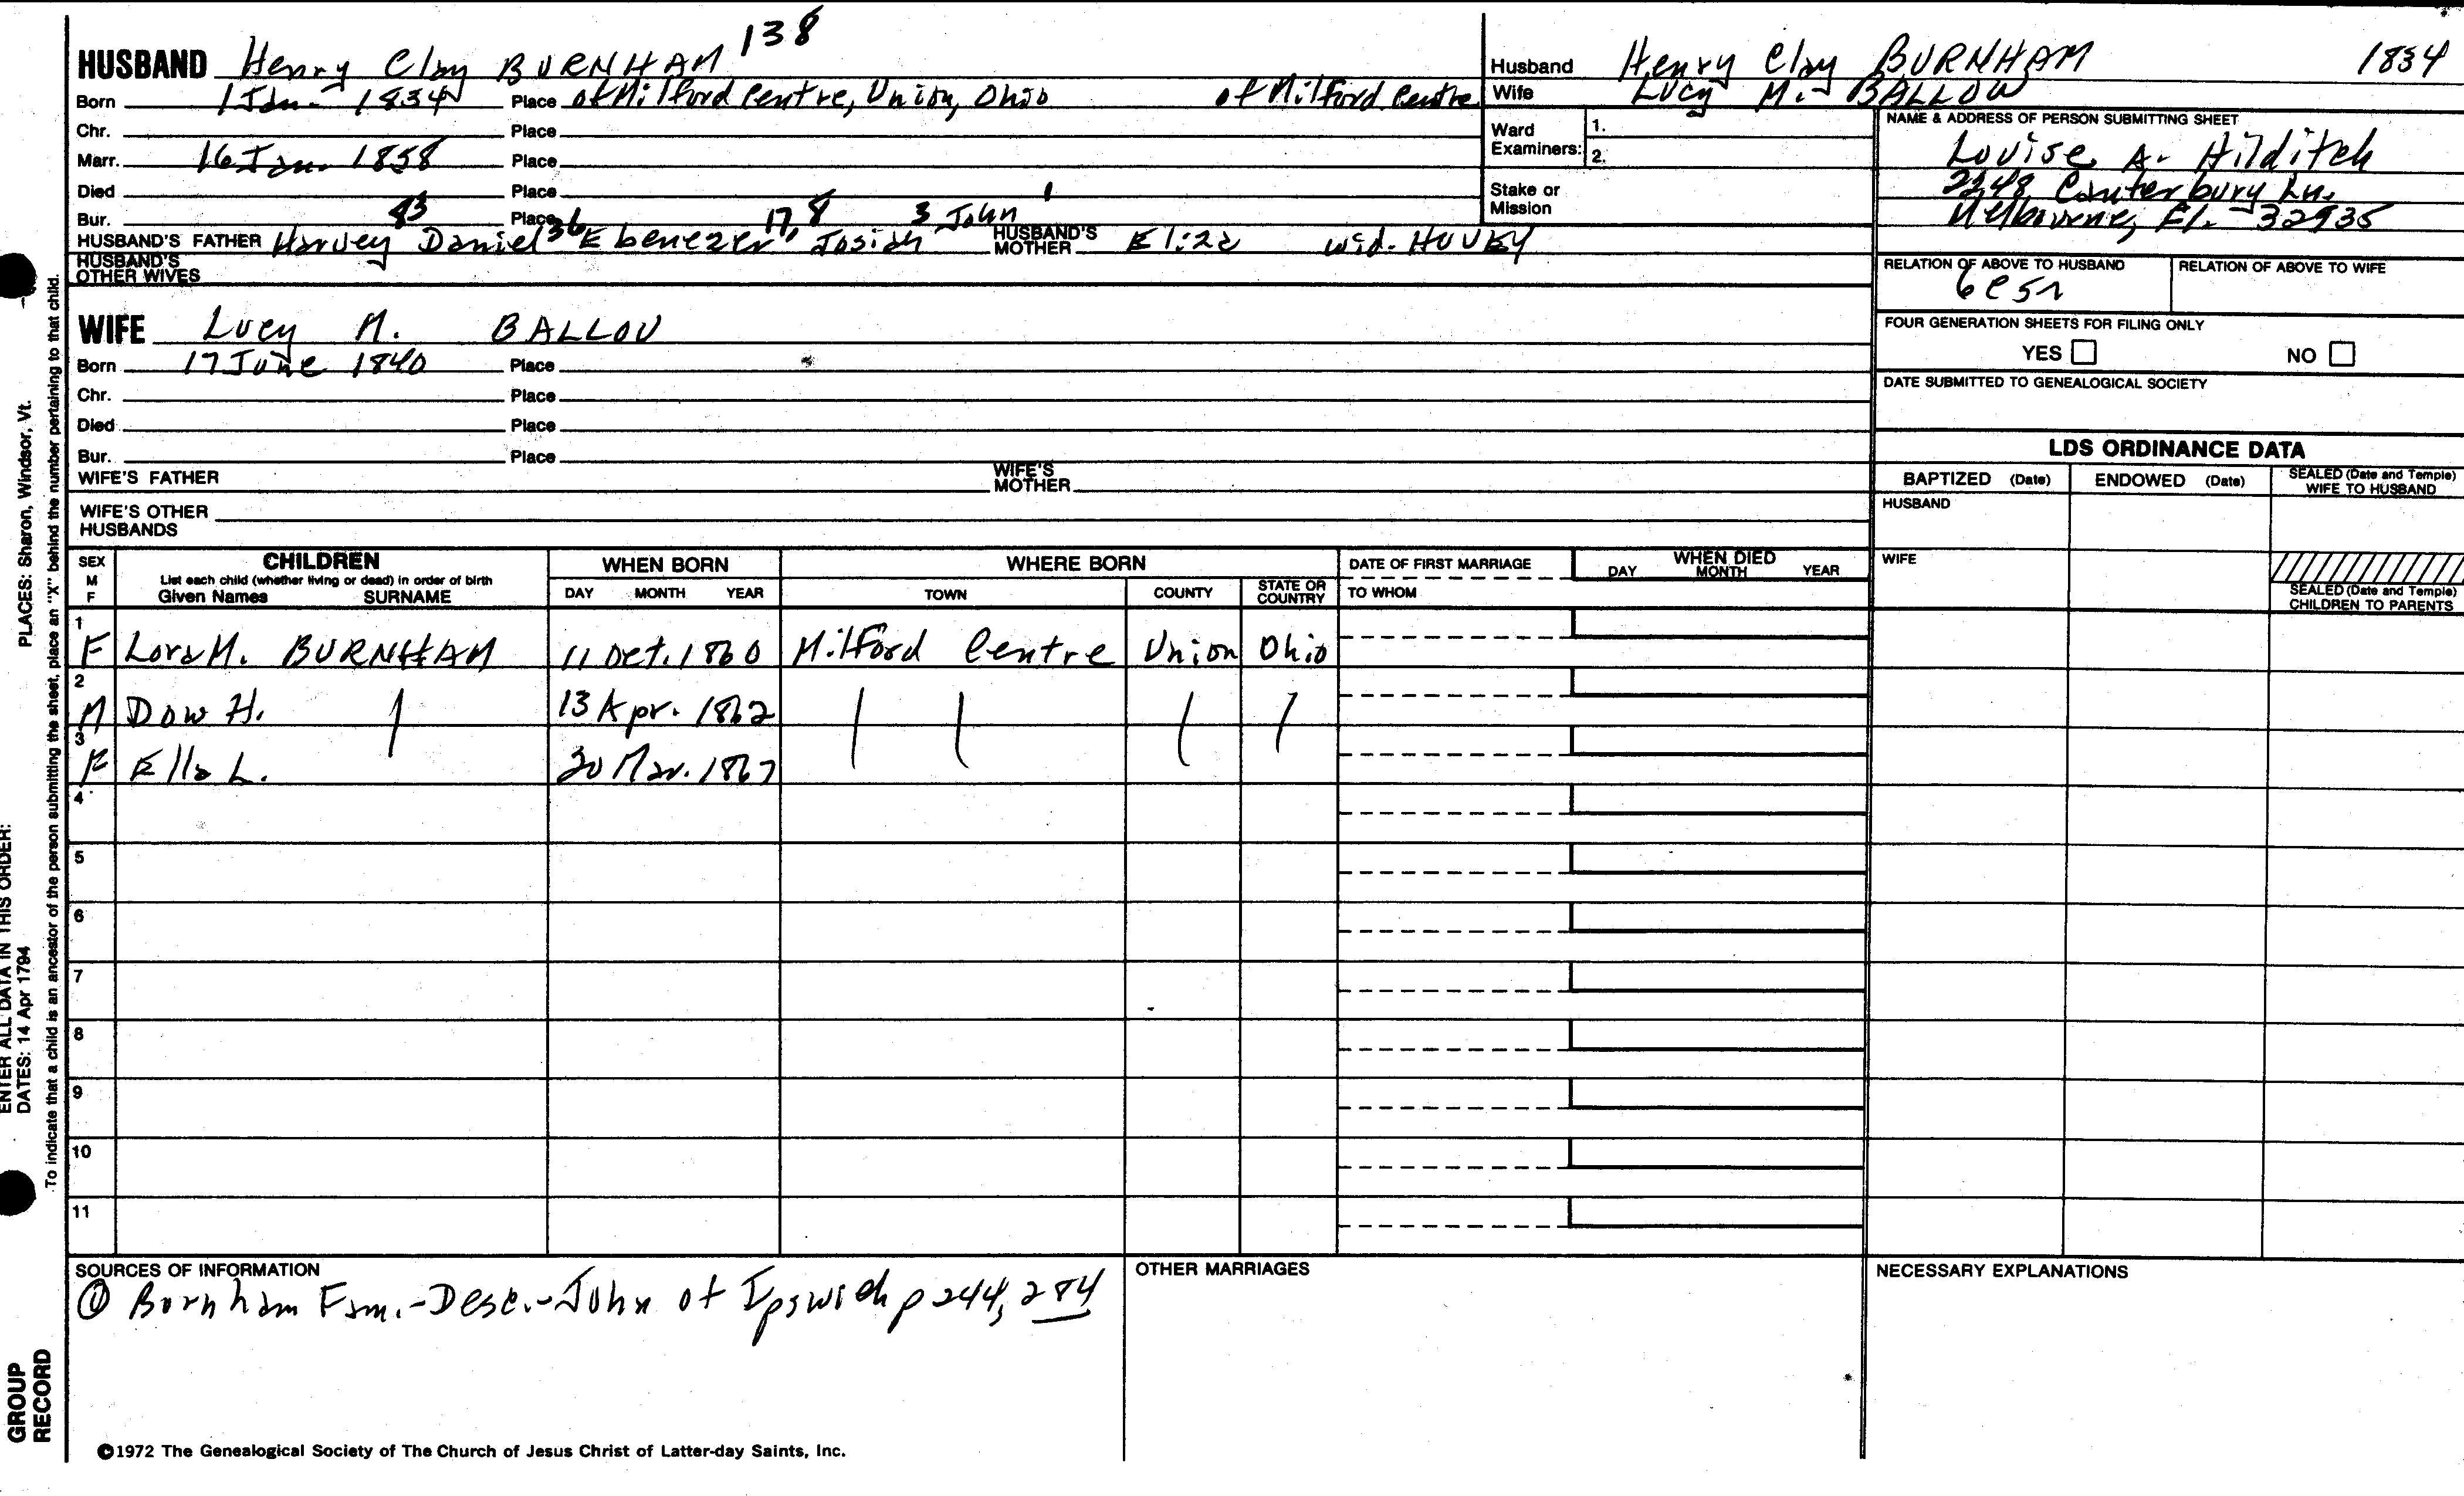 138
HUSBAND Henry Clay BURNHAM
Born 1 Jan. 1834 Place of Milford Centre, Union, Ohio of Milford Centre
Chr. Place
Marr. 16 Jan. 1858 Place
Died Place
Bur. Place
83 36 17, 8 3 John 1
HUSBAND'S FATHER Harvey Daniel Ebenezer, Josiah HUSBAND'S MOTHER Eliza wid. HOVEY
HUSBAND'S OTHER WIVES
WIFE Lucy M. BALLOU
Born 17 June 1840 Place
Chr. Place
Died Place
Bur. Place
WIFE'S FATHER WIFE'S MOTHER
WIFE'S OTHER HUSBANDS
Husband Henry Clay BURNHAM 1834
Wife Lucy M. BALLOU
Ward Examiners: 1. 2.
Stake or Mission
NAME & ADDRESS OF PERSON SUBMITTING SHEET
Louise A. Hilditch
2248 Canterbury Ln.
Melbourne, Fl. 32935
RELATION OF ABOVE TO HUSBAND RELATION OF ABOVE TO WIFE
6c5r
FOUR GENERATION SHEETS FOR FILING ONLY
YES NO
DATE SUBMITTED TO GENEALOGICAL SOCIETY
LDS ORDINANCE DATA
BAPTIZED (Date) ENDOWED (Date) SEALED (Date and Temple) WIFE TO HUSBAND
HUSBAND
WIFE
SEALED (Date and Temple) CHILDREN TO PARENTS
SEX M F CHILDREN WHEN BORN WHERE BORN DATE OF FIRST MARRIAGE WHEN DIED
List each child (whether living or dead) in order of birth
Given Names SURNAME DAY MONTH YEAR TOWN COUNTY STATE OR COUNTRY TO WHOM DAY MONTH YEAR
1 F Lora M. BURNHAM 11 Oct. 1860 Milford Centre Union Ohio
2 M Dow H. 13 Apr. 1862
3 F Ella L. 30 Mar. 1867
4
5
6
7
8
9
10
11
SOURCES OF INFORMATION
① Burnham Fam.-Desc.-John of Ipswich p 244, 284
OTHER MARRIAGES
NECESSARY EXPLANATIONS
©1972 The Genealogical Society of The Church of Jesus Christ of Latter-day Saints, Inc.
ENTER ALL DATA IN THIS ORDER:
DATES: 14 Apr 1794 PLACES: Sharon, Windsor, Vt.
To indicate that a child is an ancestor of the person submitting the sheet, place an "X" behind the number pertaining to that child.
GROUP
RECORD